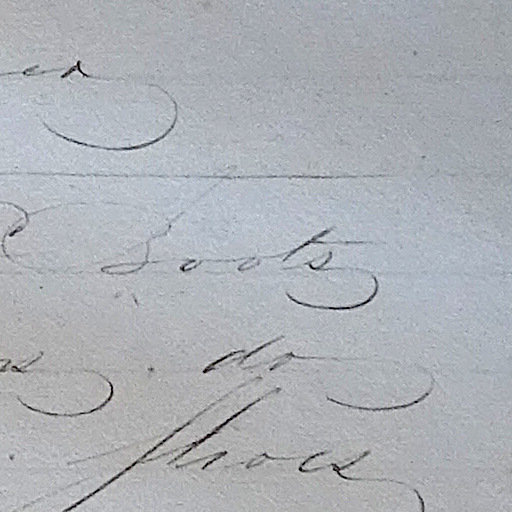 Boots
do
Shoes